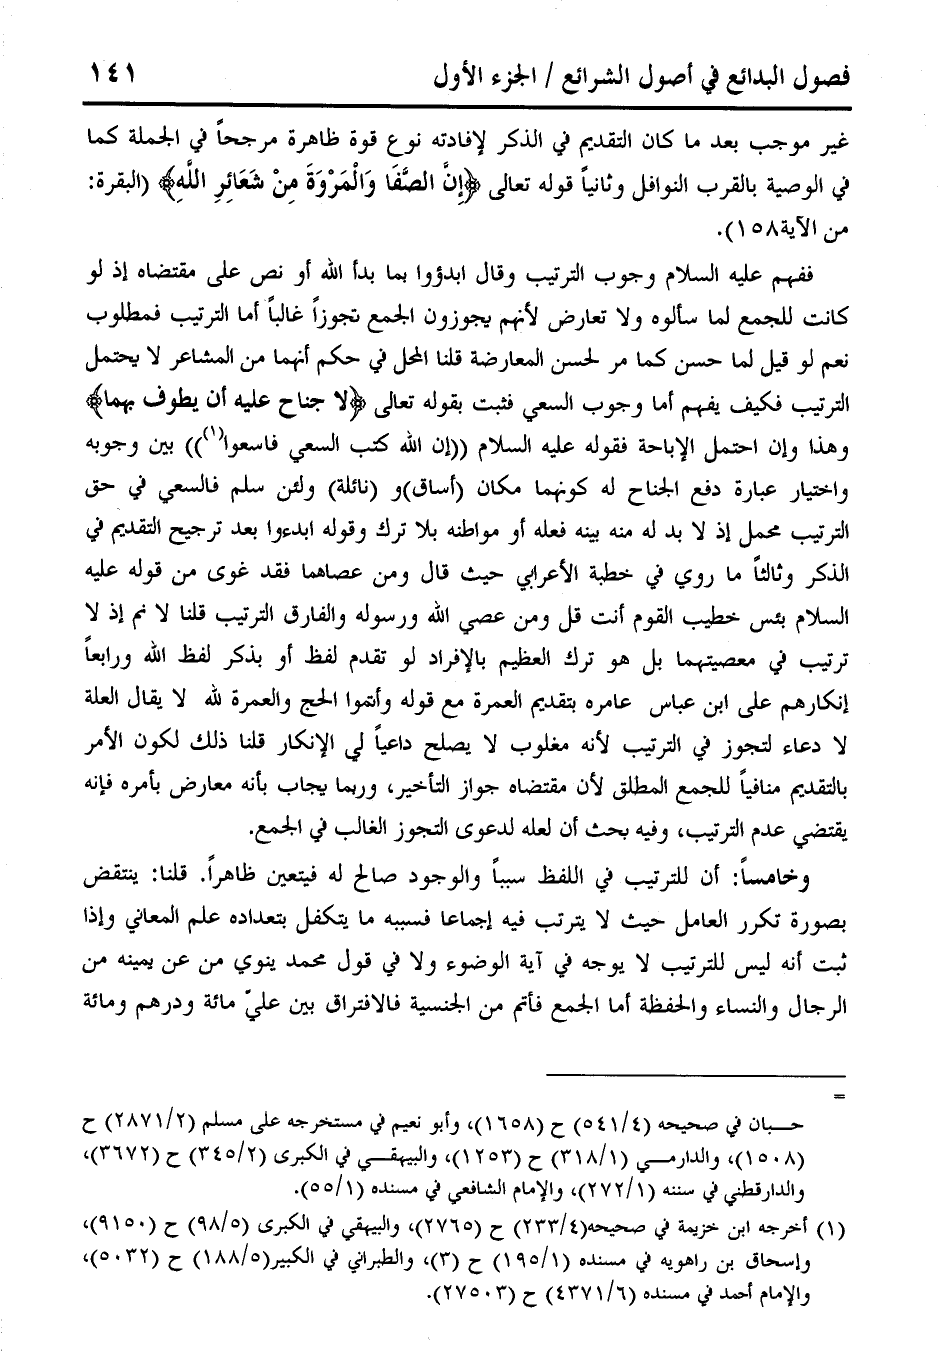 فصول البدائع في أصول الشرائع / الجزء الأول ١٤١
غير موجب بعد ما كان التقديم في الذكر لإفادته نوع قوة ظاهرة مرجحاً في الجملة كما
في الوصية بالقرب النوافل وثانياً قوله تعالى ﴿إِنَّ الصَّفَا وَالْمَرْوَةَ مِنْ شَعَائِرِ اللَّهِ﴾ (البقرة:
من الآية١٥٨).
ففهم عليه السلام وجوب الترتيب وقال ابدؤوا بما بدأ الله أو نص على مقتضاه إذ لو
كانت للجمع لما سألوه ولا تعارض لأنهم يجوزون الجمع تجوزاً غالباً أما الترتيب فمطلوب
نعم لو قيل لما حسن كما مر لحسن المعارضة قلنا المحل في حكم أنهما من المشاعر لا يحتمل
الترتيب فكيف يفهم أما وجوب السعي فثبت بقوله تعالى ﴿لا جناح عليه أن يطوف بهما﴾
وهذا وإن احتمل الإباحة فقوله عليه السلام ((إن الله كتب السعي فاسعوا(١))) بين وجوبه
واختيار عبارة دفع الجناح له كونهما مكان (أساق)و (نائلة) ولئن سلم فالسعي في حق
الترتيب محمل إذ لا بد له منه بينه فعله أو مواطنه بلا ترك وقوله ابدءوا بعد ترجيح التقديم في
الذكر وثالثاً ما روي في خطبة الأعرابي حيث قال ومن عصاهما فقد غوى من قوله عليه
السلام بئس خطيب القوم أنت قل ومن عصي الله ورسوله والفارق الترتيب قلنا لا نم إذ لا
ترتيب في معصيتهما بل هو ترك العظيم بالإفراد لو تقدم لفظ أو بذكر لفظ الله ورابعاً
إنكارهم على ابن عباس عامره بتقديم العمرة مع قوله وأتموا الحج والعمرة لله لا يقال العلة
لا دعاء لتجوز في الترتيب لأنه مغلوب لا يصلح داعياً لي الإنكار قلنا ذلك لكون الأمر
بالتقديم منافياً للجمع المطلق لأن مقتضاه جواز التأخير، وربما يجاب بأنه معارض بأمره فإنه
يقتضي عدم الترتيب، وفيه بحث أن لعله لدعوى التجوز الغالب في الجمع.
وخامساً: أن للترتيب في اللفظ سبباً والوجود صالح له فيتعين ظاهراً. قلنا: ينتقض
بصورة تكرر العامل حيث لا يترتب فيه إجماعا فسببه ما يتكفل بتعداده علم المعاني وإذا
ثبت أنه ليس للترتيب لا يوجه في آية الوضوء ولا في قول محمد ينوي من عن يمينه من
الرجال والنساء والحفظة أما الجمع فأتم من الجنسية فالافتراق بين عليّ مائة ودرهم ومائة
=
حبان في صحيحه (٥٤١/٤) ح (١٦٥٨)، وأبو نعيم في مستخرجه على مسلم (٢٨٧١/٢) ح
(١٥٠٨)، والدارمي (٣١٨/١) ح (١٢٥٣)، والبيهقي في الكبرى (٣٤٥/٢) ح (٣٦٧٢)،
والدارقطني في سننه (٢٧٢/١)، والإمام الشافعي في مسنده (٥٥/١).
(١) أخرجه ابن خزيمة في صحيحه(٢٣٣/٤) ح (٢٧٦٥)، والبيهقي في الكبرى (٩٨/٥) ح (٩١٥٠)،
وإسحاق بن راهويه في مسنده (١٩٥/١) ح (٣)، والطبراني في الكبير(١٨٨/٥) ح (٥٠٣٢)،
والإمام أحمد في مسنده (٤٣٧١/٦) ح (٢٧٥٠٣).